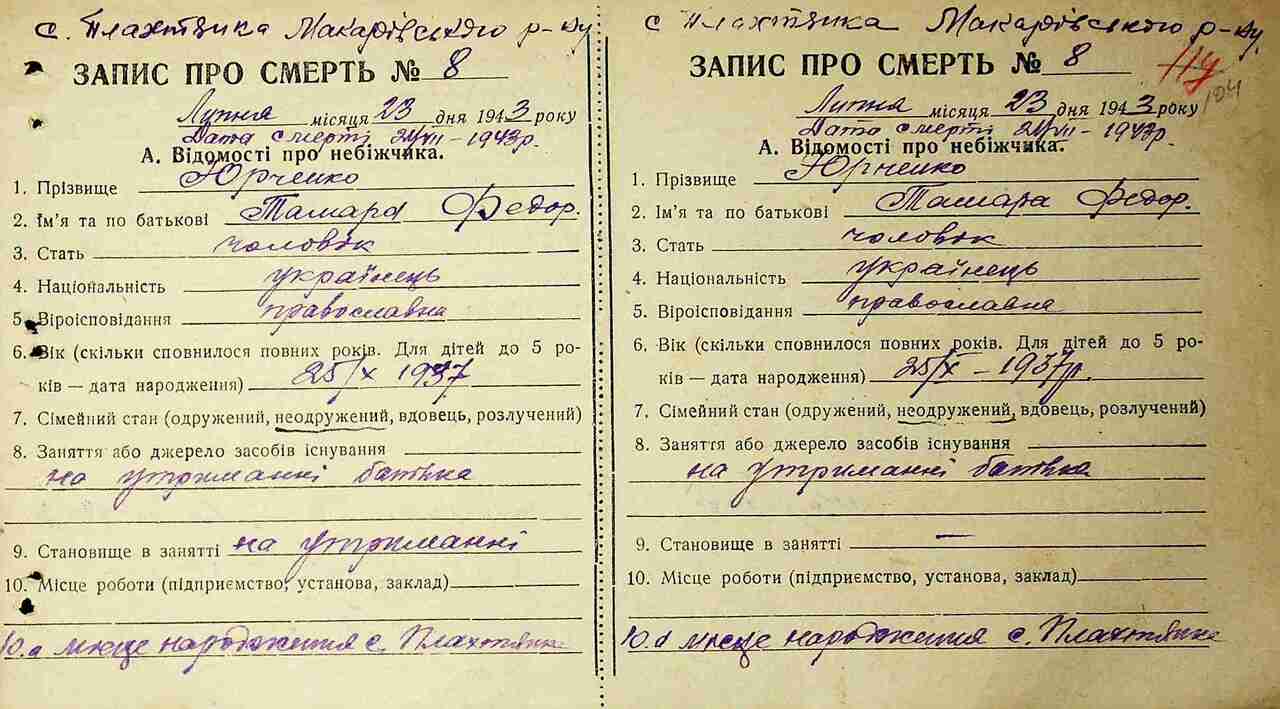 с. Плахтянка Макарівського р-ну
ЗАПИС ПРО СМЕРТЬ № 8
Липня місяця 23 дня 1943 року
Дата смерті 21/VII – 1943 р.
А. Відомості про небіжчика.
1. Прізвище Юрченко
2. Ім'я та по батькові Тамара Федор.
3. Стать чоловік
4. Національність українець
5. Віроісповідання православна
6. Вік (скільки сповнилося повних років. Для дітей до 5 ро-
ків — дата народження) 25/X 1937
7. Сімейний стан (одружений, неодружений, вдовець, розлучений)
8. Заняття або джерело засобів існування
на утриманні батька
9. Становище в занятті на утриманні
10. Місце роботи (підприємство, установа, заклад)
10.а місце народження с. Плахтянка
с Плахтянка Макарівського р-ну.
ЗАПИС ПРО СМЕРТЬ № 8
104
Липня місяця 23 дня 1943 року
Дата смерті 21/VII – 1943 р.
А. Відомості про небіжчика.
1. Прізвище Юрченко
2. Ім'я та по батькові Тамара Федор.
3. Стать чоловік
4. Національність українець
5. Віроісповідання православна
6. Вік (скільки сповнилося повних років. Для дітей до 5 ро-
ків — дата народження) 25/X – 1937 р.
7. Сімейний стан (одружений, неодружений, вдовець, розлучений)
8. Заняття або джерело засобів існування
на утриманні батька
9. Становище в занятті —
10. Місце роботи (підприємство, установа, заклад)
10.а місце народження с. Плахтянка